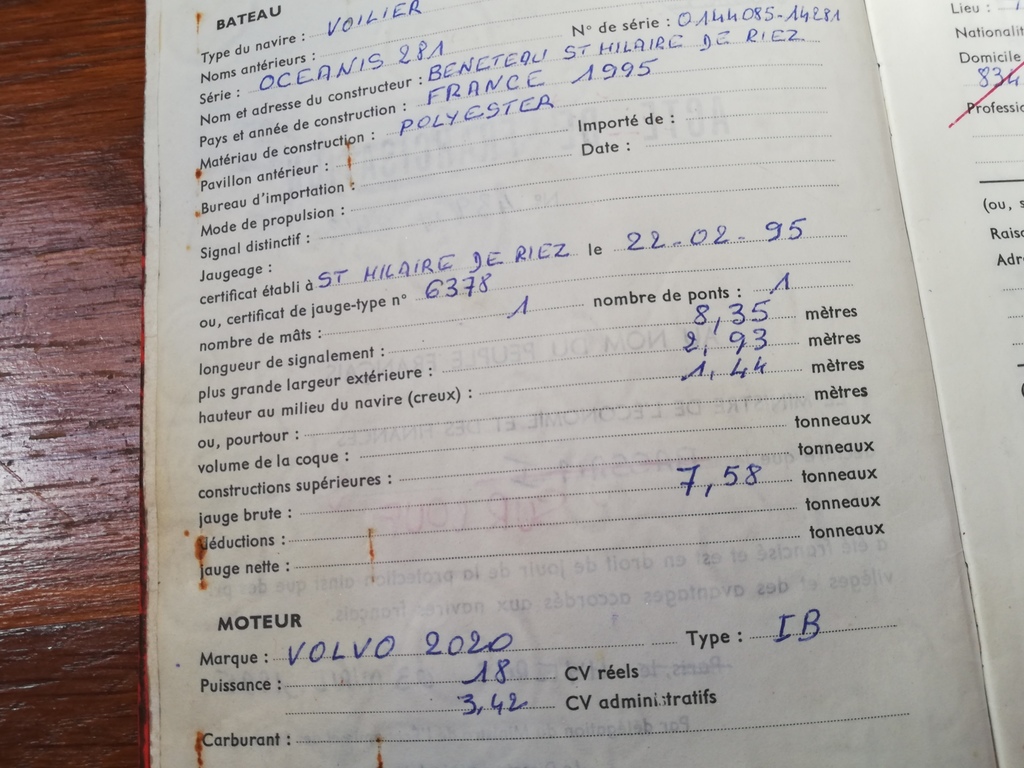 BATEAU
Type du navire : VOILIER
Noms antérieurs : N° de série : 0144085-14281
Série : OCEANIS 281
Nom et adresse du constructeur : BENETEAU ST HILAIRE DE RIEZ
Pays et année de construction : FRANCE 1995
Matériau de construction : POLYESTER
Pavillon antérieur : Importé de :
Bureau d'importation : Date :
Mode de propulsion :
Signal distinctif :
Jaugeage :
certificat établi à ST HILAIRE DE RIEZ le 22-02-95
ou, certificat de jauge-type n° 6378
nombre de mâts : 1 nombre de ponts : 1
longueur de signalement : 8,35 mètres
plus grande largeur extérieure : 2,93 mètres
hauteur au milieu du navire (creux) : 1,44 mètres
ou, pourtour : mètres
volume de la coque : tonneaux
constructions supérieures : tonneaux
jauge brute : 7,58 tonneaux
déductions : tonneaux
jauge nette : tonneaux
MOTEUR
Marque : VOLVO 2020 Type : IB
Puissance : 18 CV réels
3,42 CV administratifs
Carburant :
Lieu :
Nationalit
Domicile
834
Professi
(ou, s
Raiso
Adr